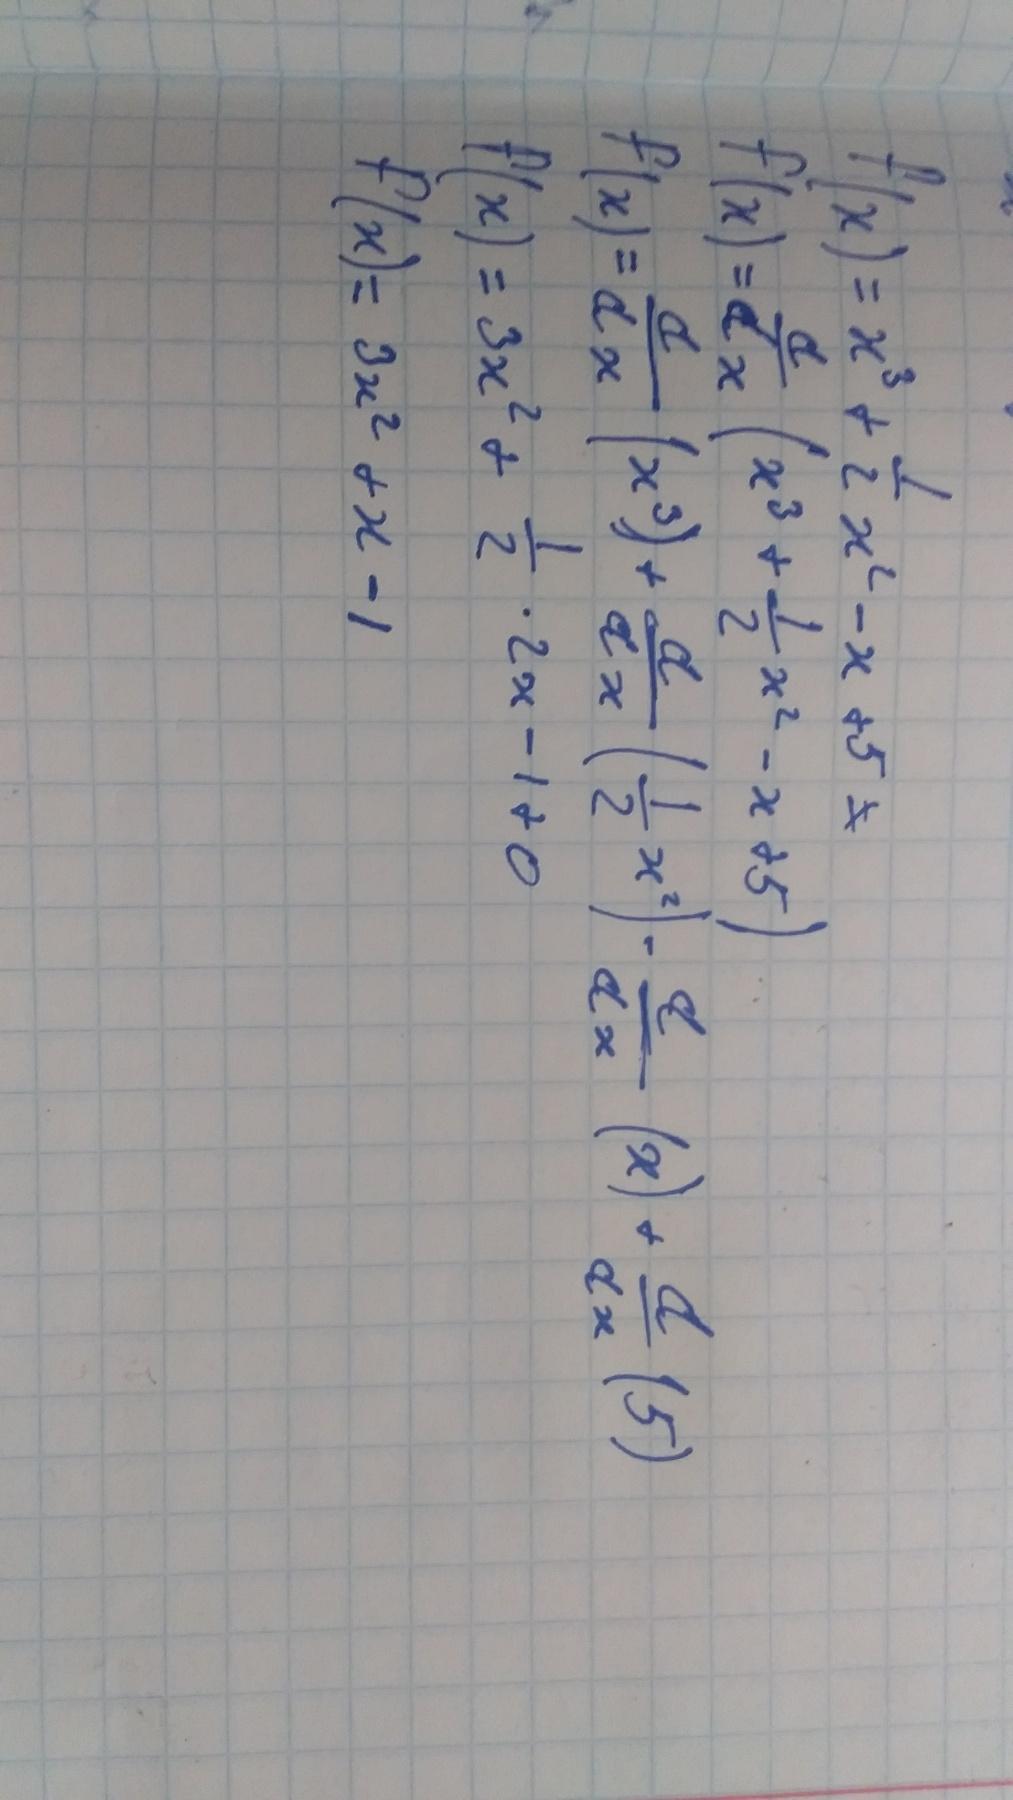 f(x) = x³ + 1/2 x² - x + 5 =
f'(x) = d/dx (x³ + 1/2 x² - x + 5)
f'(x) = d/dx (x³) + d/dx (1/2 x²) - d/dx (x) + d/dx (5)
f'(x) = 3x² + 1/2 · 2x - 1 + 0
f'(x) = 3x² + x - 1